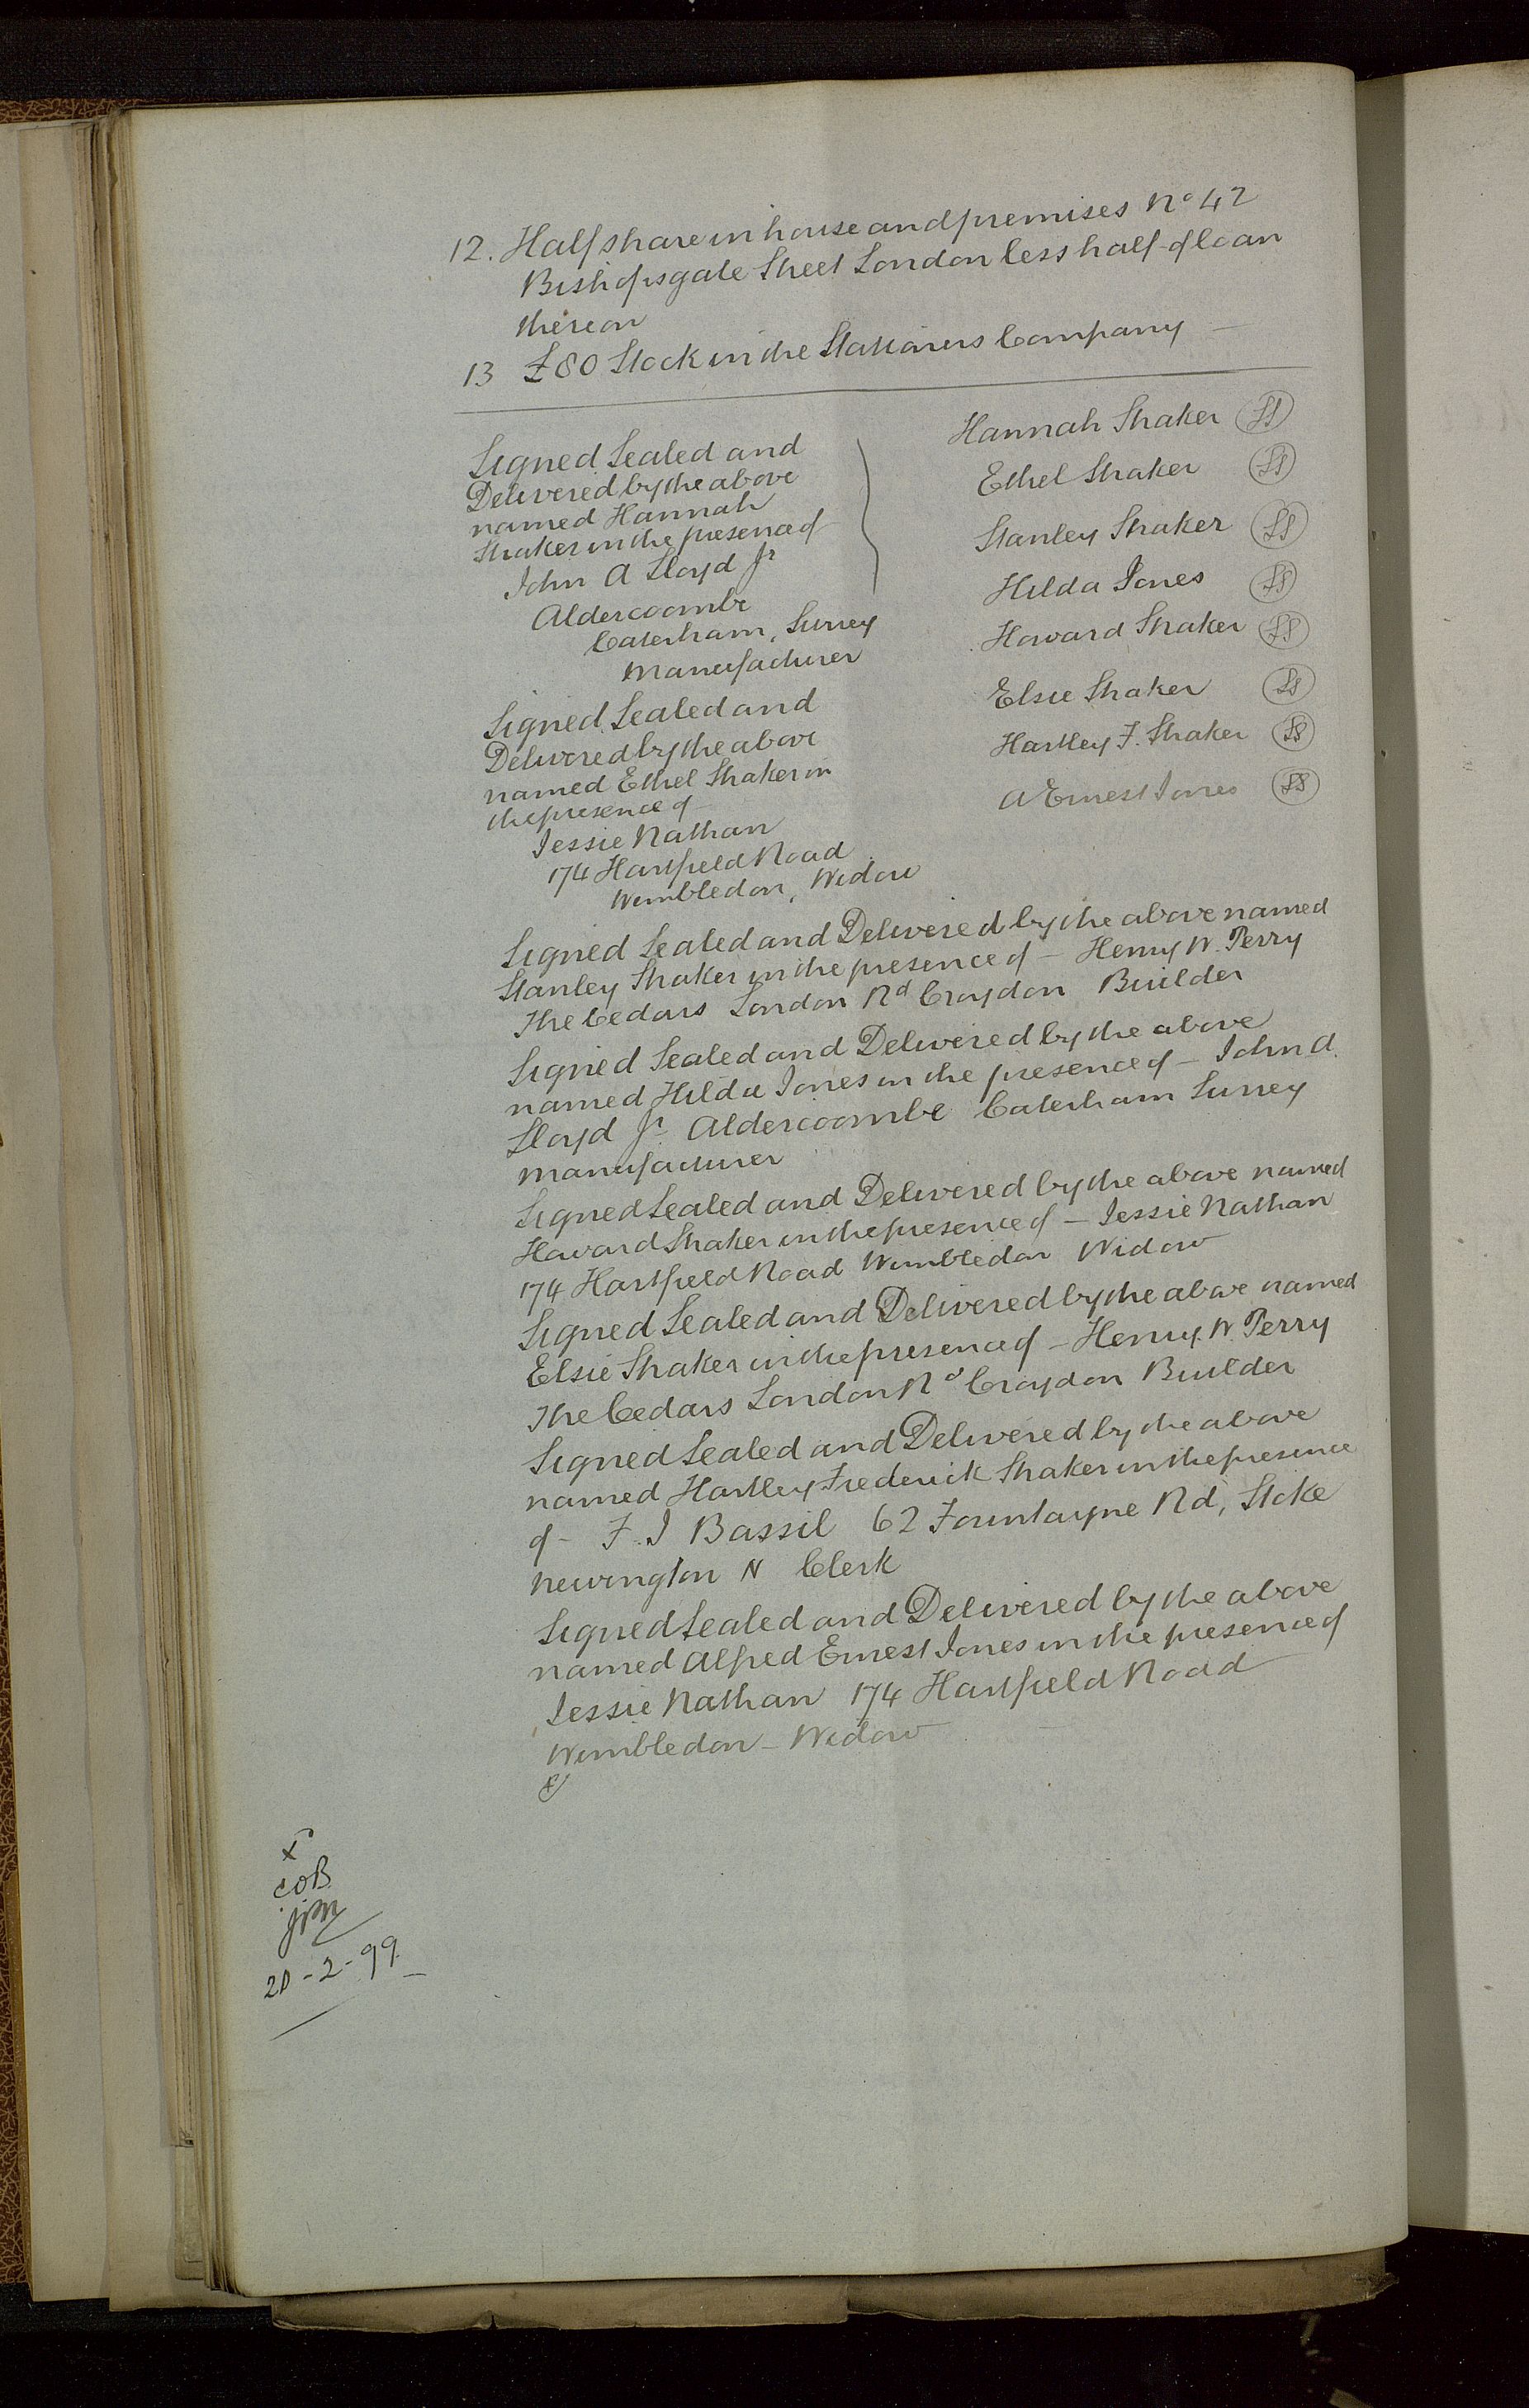 12. Half share in house and premises No 42
Bishopsgate Street London less half of loan
thereon
13 £80 Stock in the Stationers Company —
Signed Sealed and
Delivered by the above
named Hannah
Straker in the presence of
John A Lloyd Jr
Aldercoombe
Caterham, Surrey
Manufacturer
Hannah Straker LS
Ethel Straker LS
Stanley Straker LS
Hilda Jones LS
Howard Straker LS
Elsie Straker LS
Hartley F. Straker LS
A Ernest Jones LS
Signed Sealed and
Delivered by the above
named Ethel Straker in
the presence of
Jessie Nathan
174 Hartfield Road
Wimbledon, Widow
Signed Sealed and Delivered by the above named
Stanley Straker in the presence of — Henry W. Perry
The Cedars London Rd Croydon Builder
Signed Sealed and Delivered by the above
named Hilda Jones in the presence of — John A.
Lloyd Jr Aldercoombe Caterham Surrey
Manufacturer
Signed Sealed and Delivered by the above named
Howard Straker in the presence of — Jessie Nathan
174 Hartfield Road Wimbledon Widow
Signed Sealed and Delivered by the above named
Elsie Straker in the presence of — Henry W. Perry
The Cedars London Rd Croydon Builder
Signed Sealed and Delivered by the above
named Hartley Frederick Straker in the presence
of — F. J Bassil 62 Fountayne Rd, Stoke
Newington N Clerk
Signed Sealed and Delivered by the above
named Alfred Ernest Jones in the presence of
Jessie Nathan 174 Hartfield Road
Wimbledon — Widow
x
COB
JPM
20-2-99